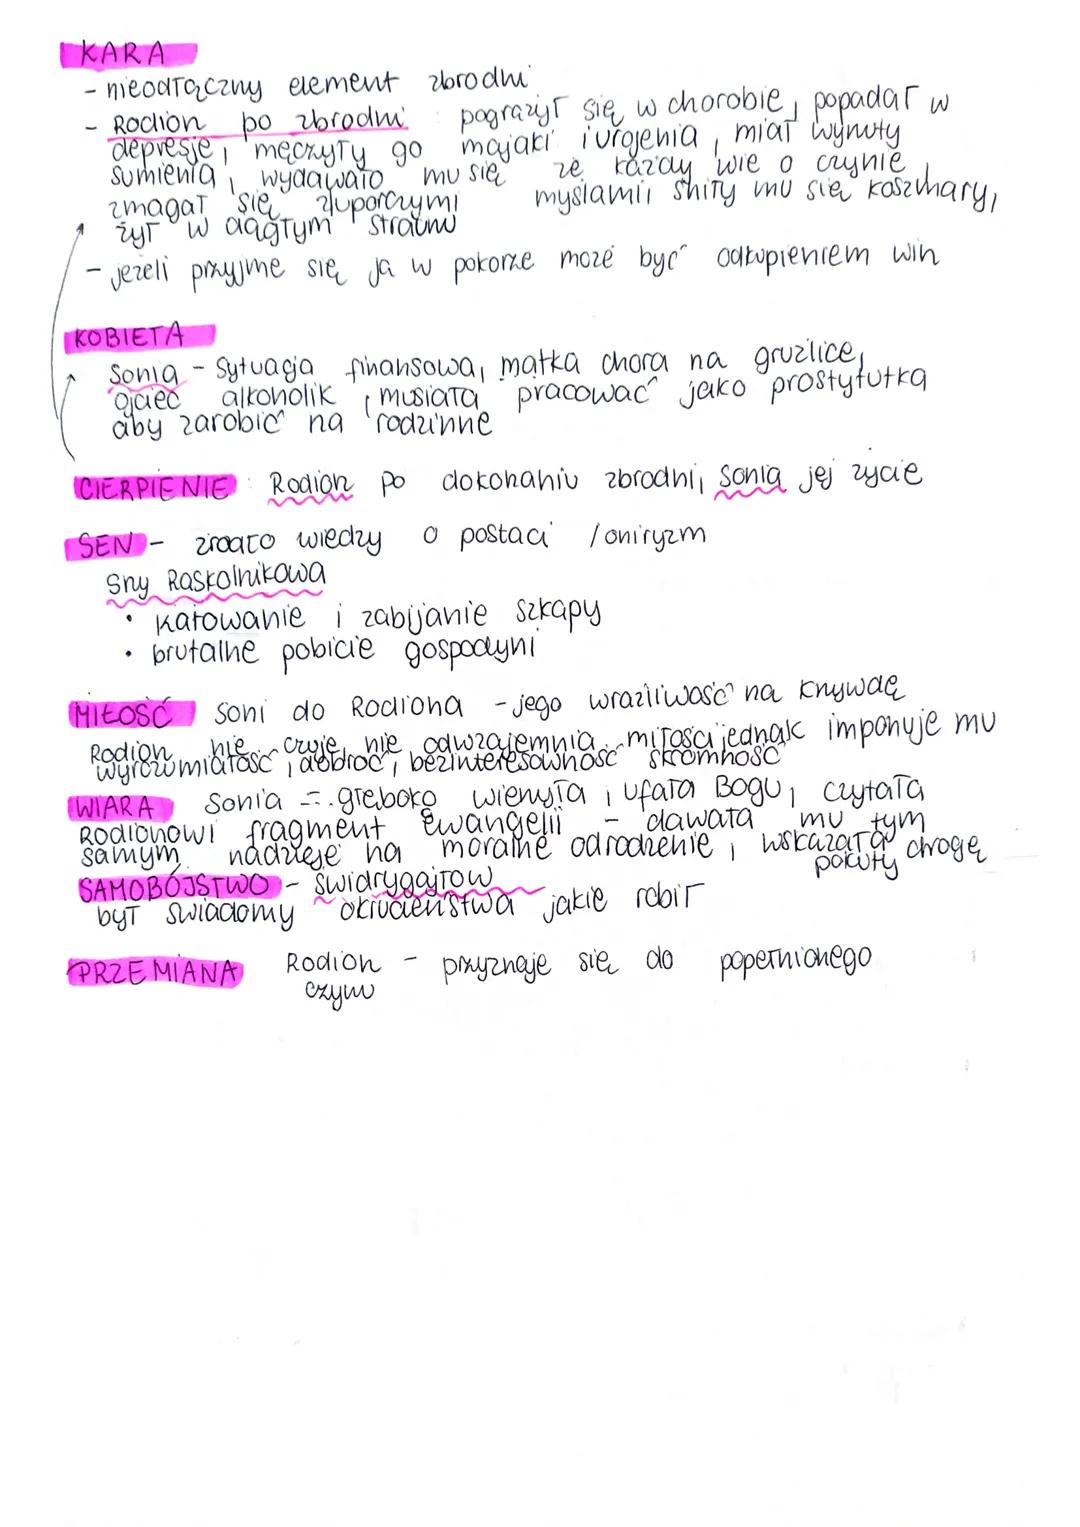 KARA
- nieodłączny element zbrodni
- Rodion po zbrodni : pogrążył się w chorobie, popadał w
depresję, męczyły go majaki i urojenia, miał wyrzuty
sumienia, wydawało mu się że każdy wie o czynie,
zmagał się z uporczymi myślami i śniły mu się koszmary,
żył w ciągłym strachu
- jeżeli przyjme się ją w pokorze może być odkupieniem win
KOBIETA
Sonia - sytuacja finansowa, matka chora na gruźlice,
ojciec alkoholik, musiała pracować jako prostytutka
aby zarobić na rodzinne
CIERPIENIE : Rodion po dokonaniu zbrodni, Sonia jej życie
SEN - źródło wiedzy o postaci / oniryzm
Sny Raskolnikowa
• katowanie i zabijanie szkapy
• brutalne pobicie gospodyni
MIŁOŚĆ Soni do Rodiona - jego wrażliwość na krzywdę
Rodion nie czuje nie odwzajemnia miłości jednak imponuje mu
wyrozumiałość, dobroć, bezinteresowność skromność
WIARA Sonia - głęboko wierzyła, ufała Bogu, czytała
Rodionowi fragment Ewangelii - dawała mu tym
samym nadzieje na moralne odrodzenie, wskazała drogę
pokuty
SAMOBÓJSTWO - Świdrygajłow
był świadomy okrucieństwa jakie robił
PRZEMIANA Rodion - przyznaje się do popełnionego
czynu